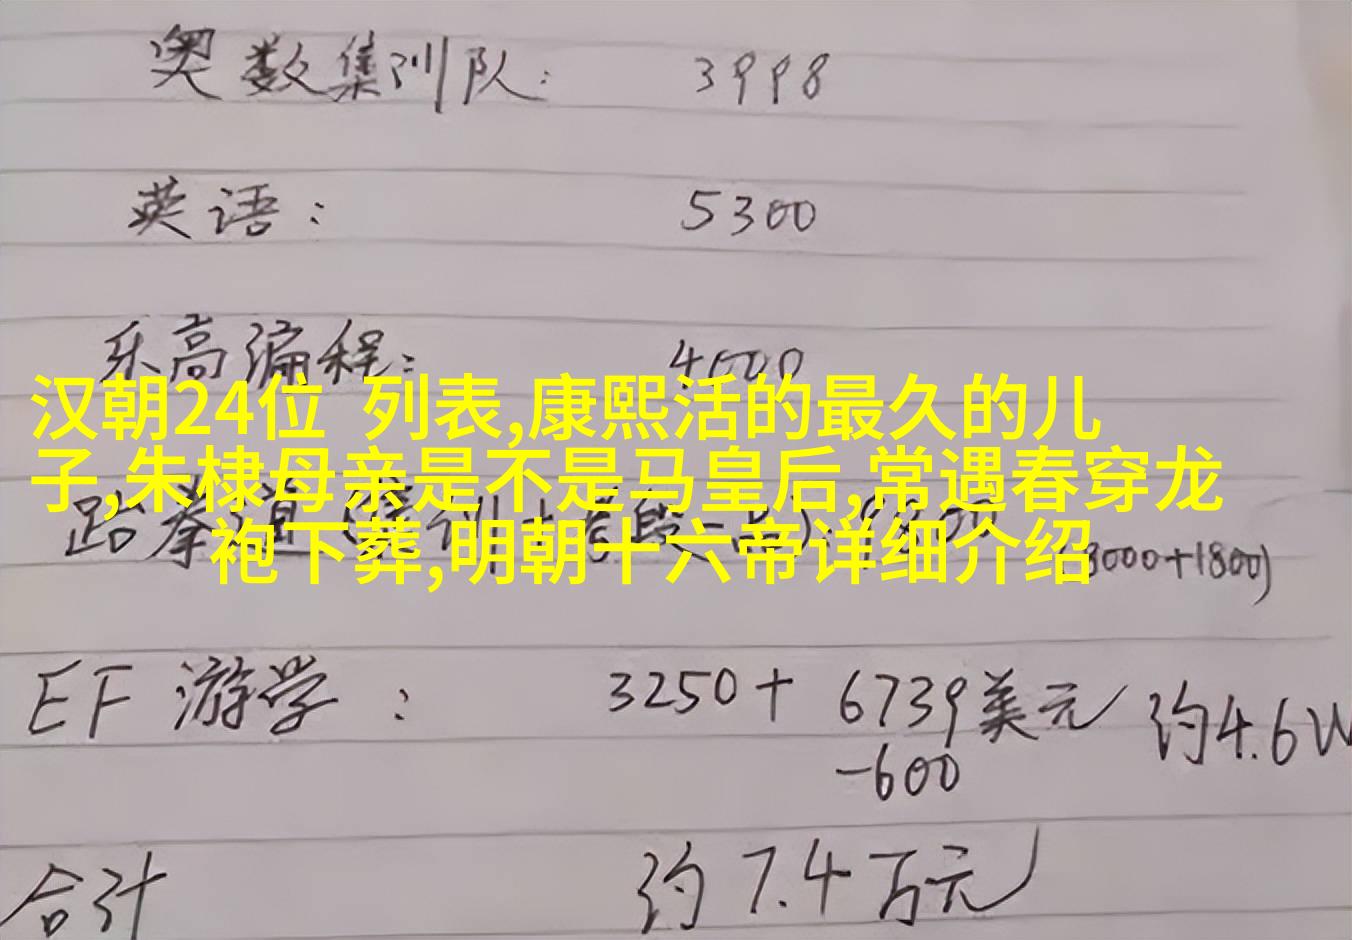 奥数集训队: 3998
英语: 5300
乐高编程: 4000
汉朝24位 列表,康熙活的最久的儿
子,朱棣母亲是不是马皇后,常遇春穿龙
袍下葬,明朝十六帝详细介绍
跆拳道
3000+1800)
EF 游学: 3250+ 6739美元 约4.6W
-600
合计 约7.4万元